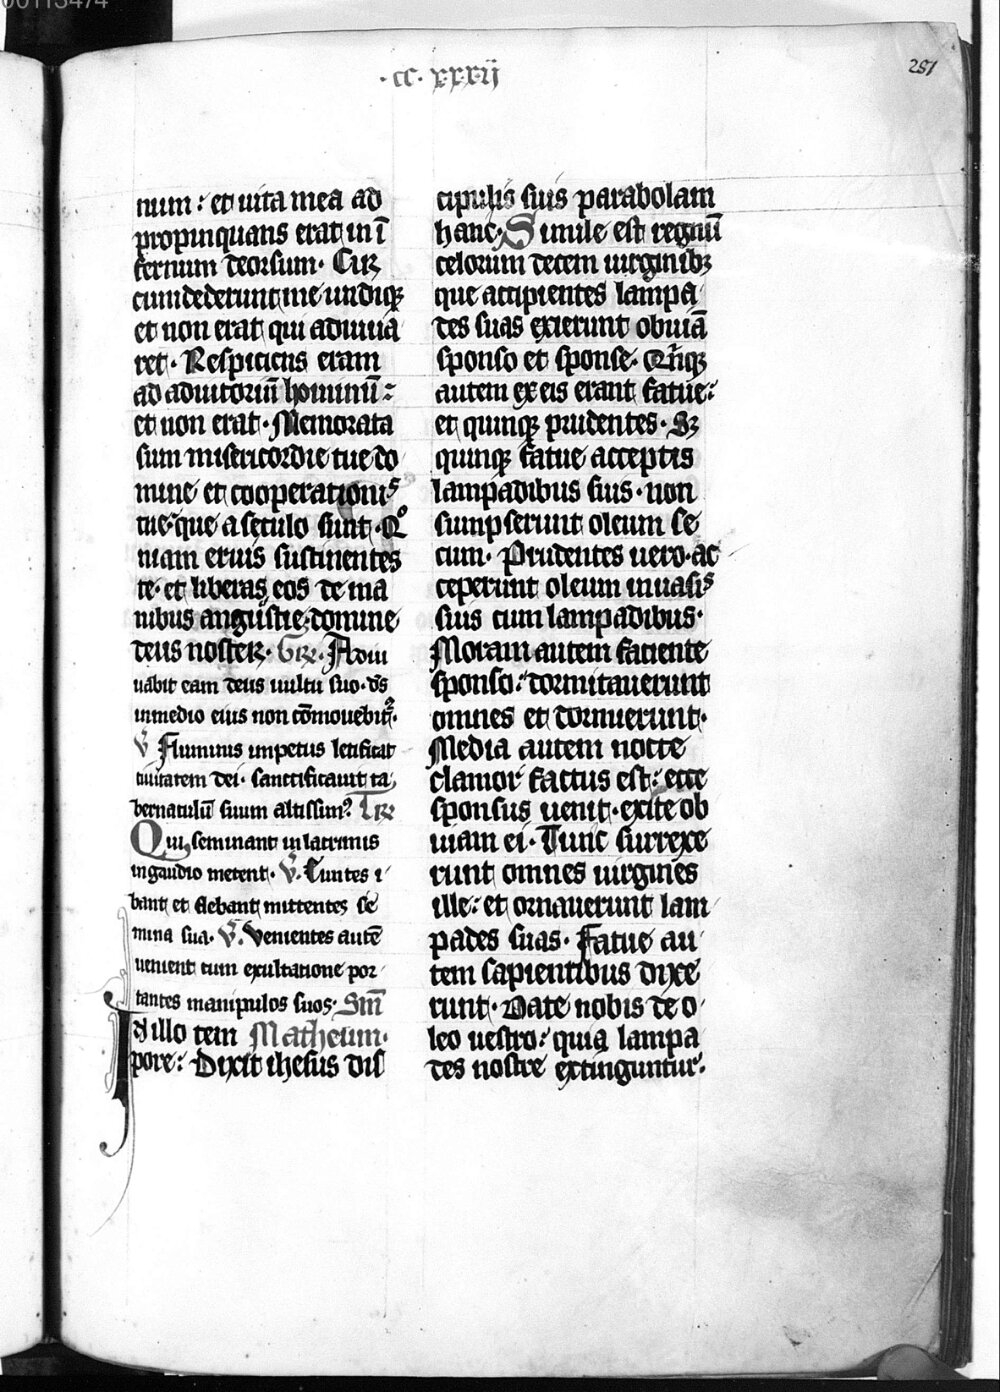 00113474
·cc·xxxij
281
num: et uita mea ad
propinquans erat in ī
fernum deorsum· Cir
cumdederunt me undiqꝫ
et non erat qui adiuuā
ret· Respiciens eram
ad adiutoriū hominū:
et non erat· Memorata
sum misericordie tue do
mine et cooperationis
tue que a seculo sunt· Qͦ
niam eruis sustinentes
te· et liberas eos de ma
nibus angustie· domine
deus noster· Gr̄· Adiu
uabit eam deus uultu suo· ds̄
in medio eius non cōmouebit᷑·
V̄ Fluminis impetus letificat
ciuitatem dei· sanctificauit ta
bernaculū suum altissim⁹ Tr̄
Qui seminant in lacrimis
in gaudio metent· V̄· Euntes i
bant et flebant mittentes se
mina sua· V̄· Venientes autē
uenient cum exultatione por
tantes manipulos suos· Sm̄
In illo tem Matheum·
pore: Dixit ihesus dis
cipulis suis parabolam
hanc· Simile est regnū
celorum decem uirginibꝫ
que accipientes lampa
des suas exierunt obuiā
sponso et sponse· Qn̄qꝫ
autem ex eis erant fatue:
et quinqꝫ prudentes· Sꝫ
quinqꝫ fatue acceptis
lampadibus suis· non
sumpserunt oleum se
cum· Prudentes uero· ac
ceperunt oleum in uasis
suis cum lampadibus·
Moram autem faciente
sponso: dormitauerunt
omnes et dormierunt·
Media autem nocte
clamor factus est: ecce
sponsus uenit· exite ob
uiam ei· Tunc surrexe
runt omnes uirgines
ille: et ornauerunt lam
pades suas· Fatue au
tem sapientibus dixe
runt· Date nobis de o
leo uestro: quia lampa
des nostre extinguntur·